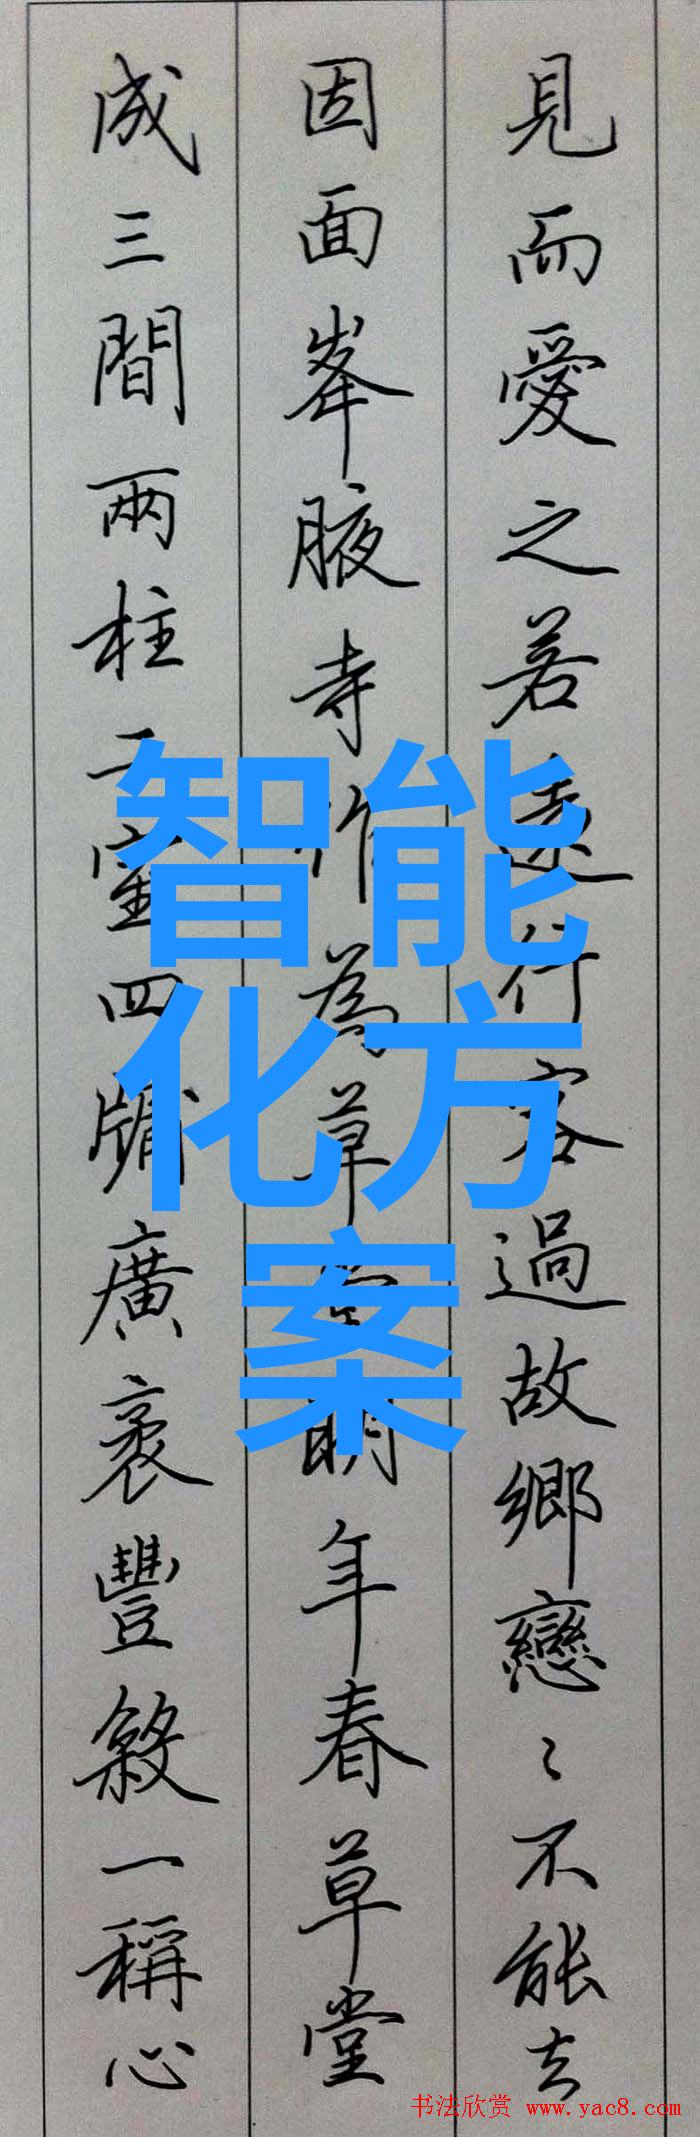 見而愛之若遠行客過故鄉戀〻不能去
因面峯腋寺作為草堂明年春草堂
成三間兩柱二室四牖廣袤豐殺一稱心
智能
化方
案
书法欣赏 www.yac8.com